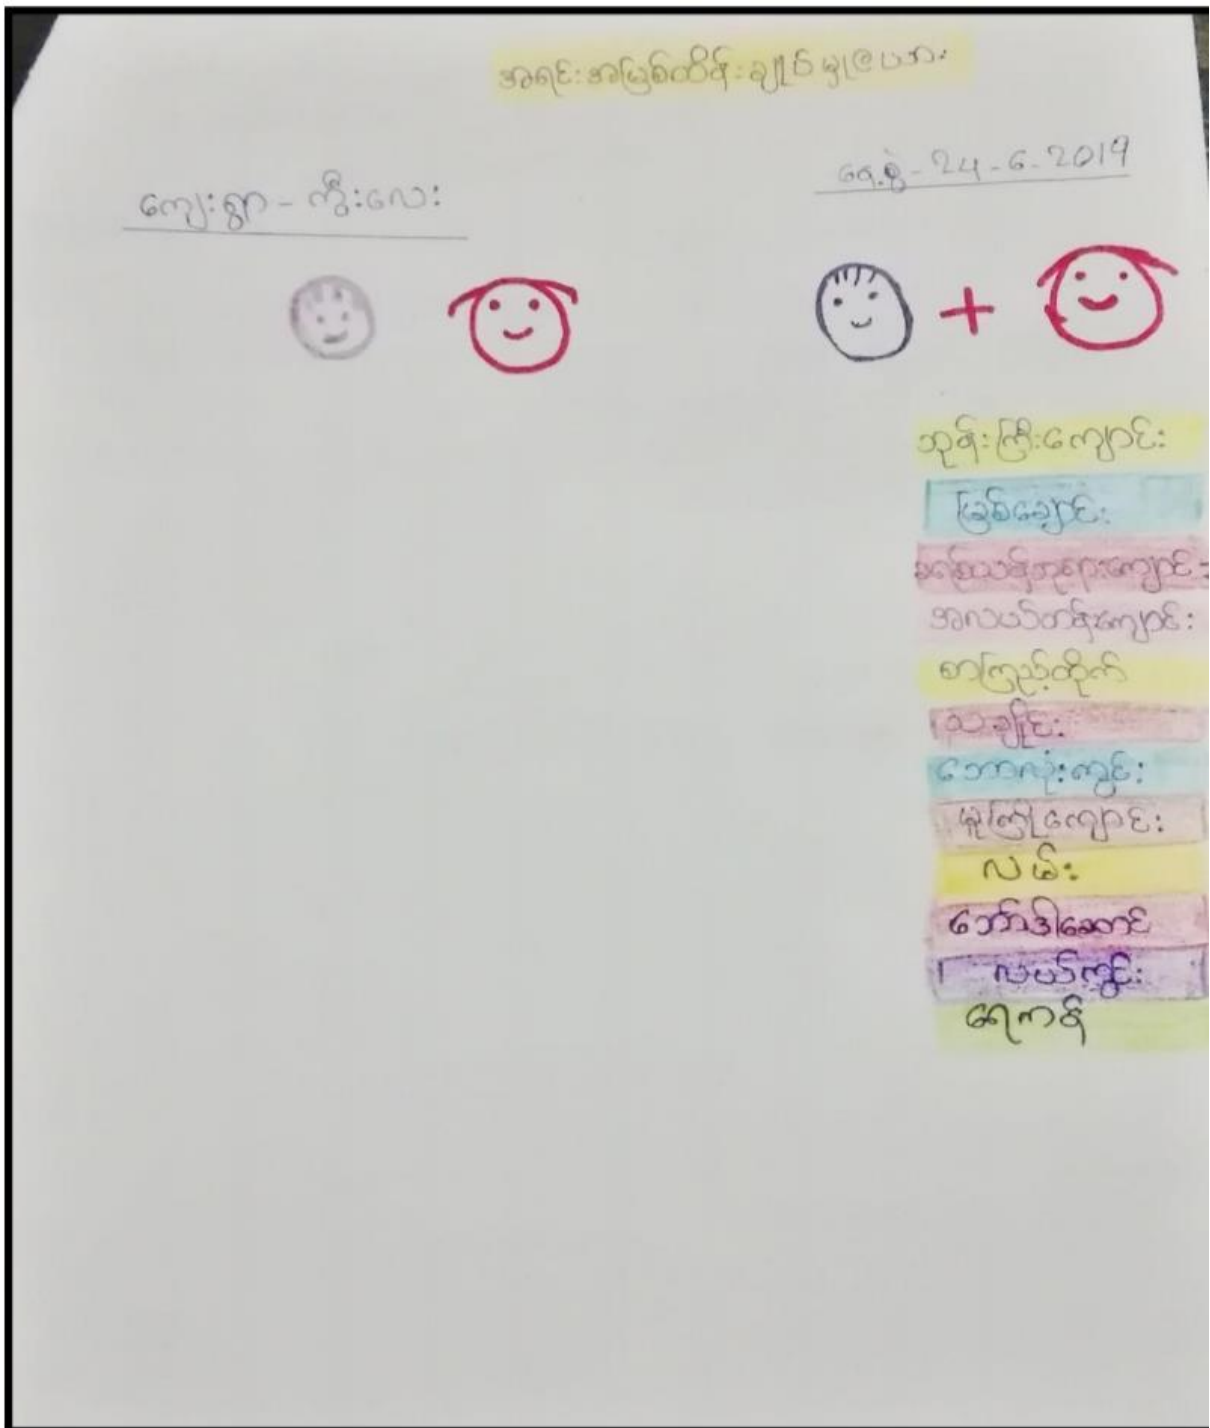 အရင်းအမြစ်ထိန်းချုပ်မှုဇယား
ကျေးရွာ - ကွီးလေး
နေ့စွဲ - 24 - 6 - 2019
ဘုန်းကြီးကျောင်း
မြစ်ချောင်း
ခရစ်ယာန်ဘုရားကျောင်း
အလယ်တန်းကျောင်း
စာကြည့်တိုက်
သချိုင်း
ဘောလုံးကွင်း
မူကြိုကျောင်း
လမ်း
ဘော်ဒါဆောင်
လယ်ကွင်း
ရေကန်